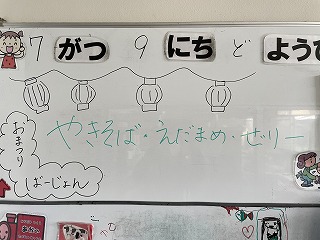 7 がつ 9 にち ど ようび
やきそば・えだまめ・ゼリー
おまつり
ばーじょん